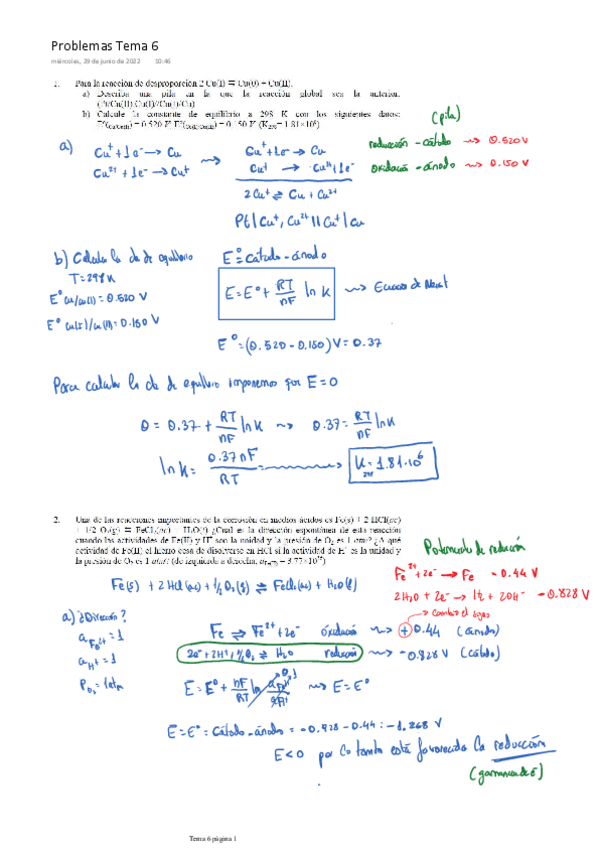 Problemas Tema 6
miércoles, 29 de junio de 2022 10:46
1. Para la reacción de desproporción 2 Cu(I) ⇌ Cu(0) + Cu(II).
a) Describa una pila en la que la reacción global sea la anterior.
(Pt//Cu(II),Cu(I)//Cu(I)/Cu)
b) Calcule la constante de equilibrio a 298 K con los siguientes datos:
= 0.520 V = 0.150 V (K298= 1.81×10⁶)
(pila)
a) Cu⁺ + 1e⁻ → Cu
Cu²⁺ + 1e⁻ → Cu⁺
Cu⁺ + 1e⁻ → Cu
Cu⁺ → Cu²⁺ + 1e⁻
2Cu⁺ ⇌ Cu + Cu²⁺
Pt | Cu⁺, Cu²⁺ || Cu⁺ | Cu
reducción - cátodo → 0.520 V
oxidación - ánodo → 0.150 V
b) Calcular la cte de equilibrio
T = 298 K
E° Cu/Cu(I) = 0.520 V
E° = 0.150 V
E° = cátodo - ánodo
E = E° + RT/nF ln K → Ecuación de Nernst
E° = (0.520 - 0.150) V = 0.37
Para calcular la cte de equilibrio imponemos que E = 0
0 = 0.37 + RT/nF ln K → 0.37 = RT/nF ln K
ln K = 0.37 nF/RT → K = 1.81·10⁶
298
2. Una de las reacciones importantes de la corrosión en medios ácidos es Fe(s) + 2 HCl(ac)
+ 1/2 O₂(g) ⇌ FeCl₂(ac) + H₂O(l) ¿Cuál es la dirección espontánea de esta reacción
cuando las actividades de Fe(II) y H⁺ son la unidad y la presión de O₂ es 1 atm? ¿A qué
actividad de Fe(II) el hierro cesa de disolverse en HCl si la actividad de H⁺ es la unidad y
la presión de O₂ es 1 atm? (de izquierda a derecha,
Fe(s) + 2 HCl(ac) + 1/2 O₂(g) ⇌ FeCl₂(ac) + H₂O(g)
Potenciales de reducción
Fe²⁺ + 2e⁻ → Fe - 0.44 V
2H₂O + 2e⁻ → H₂ + 2OH⁻ - 0.828 V
→ Cambia el signo
a) ¿Dirección?
a Fe²⁺ = 1
a H⁺ = 1
P O₂ = 1 atm
Fe ⇌ Fe²⁺ + 2e⁻ oxidación → + 0.44 (ánodo)
2e⁻ + 2H⁺ + 1/2 O₂ ⇌ H₂O reducción → - 0.828 V (cátodo)
E = E° + nF/RT ln → E = E°
E = E° = Cátodo - ánodo = - 0.828 - 0.44 = - 1.268 V
E < 0 por lo tanto está favorecida la reducción
Tema 6 página 1